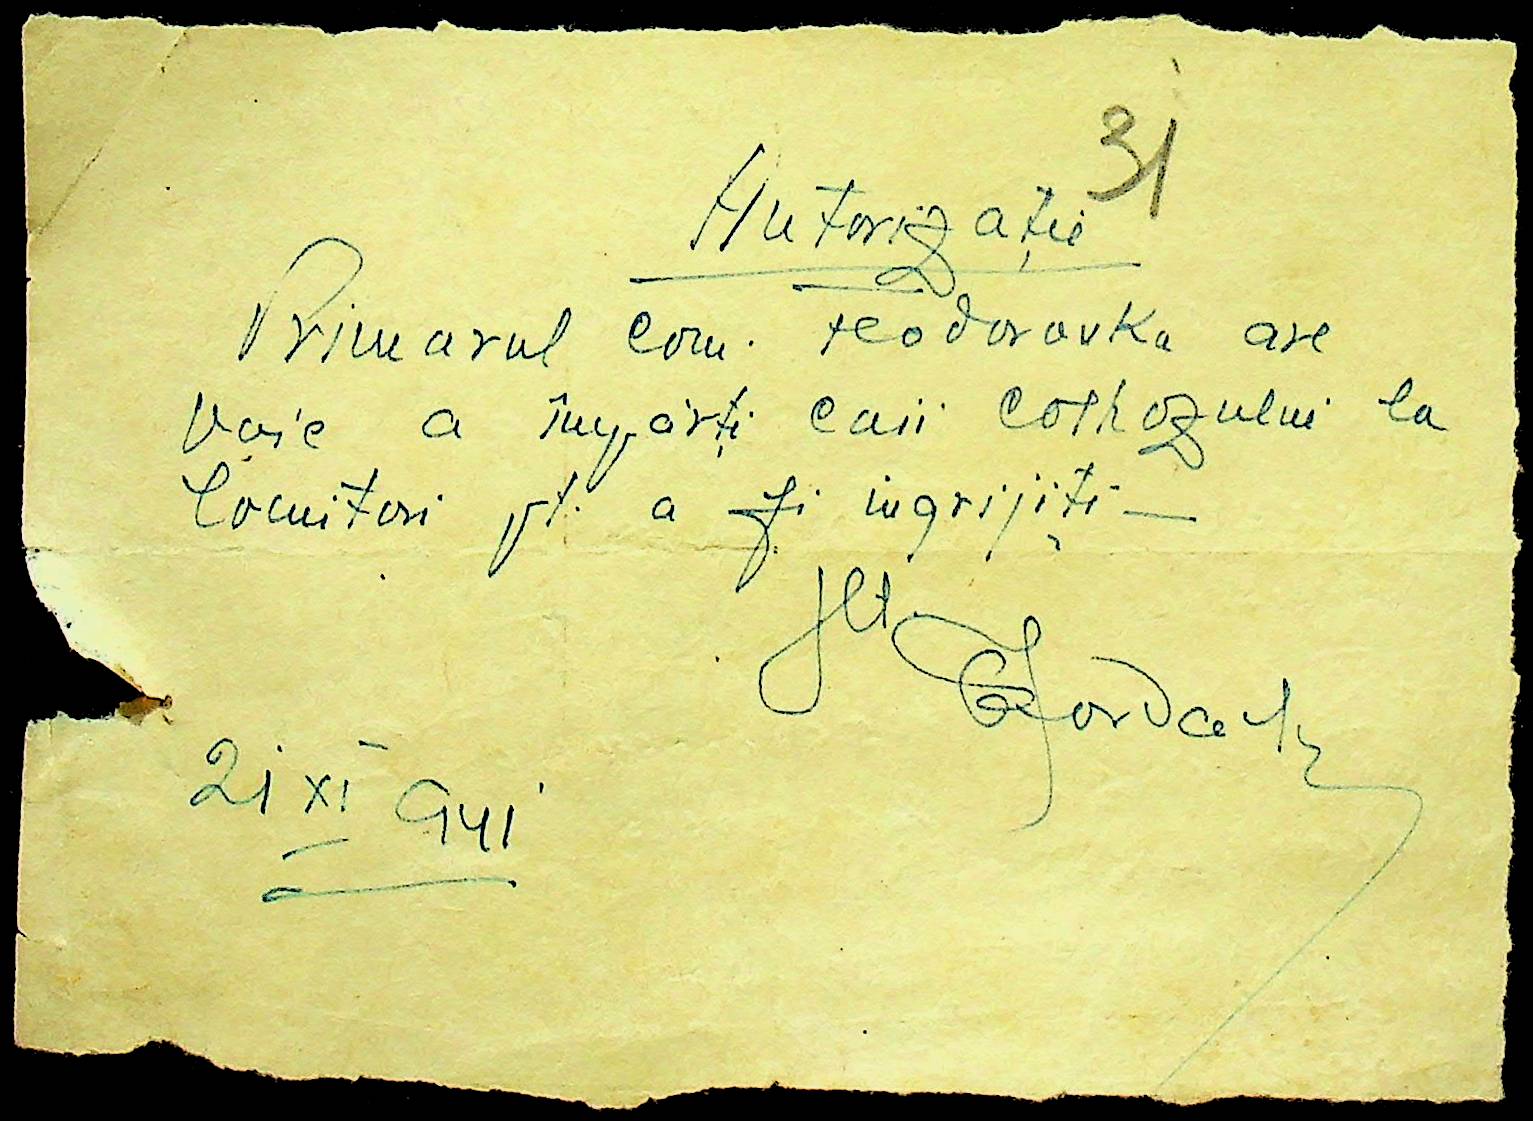 31
Autorizație
Primarul com. Teodorovka are
voie a împărți caii colhozului la
locuitori pt. a fi ingrijiți —
Slt
21 XI 941